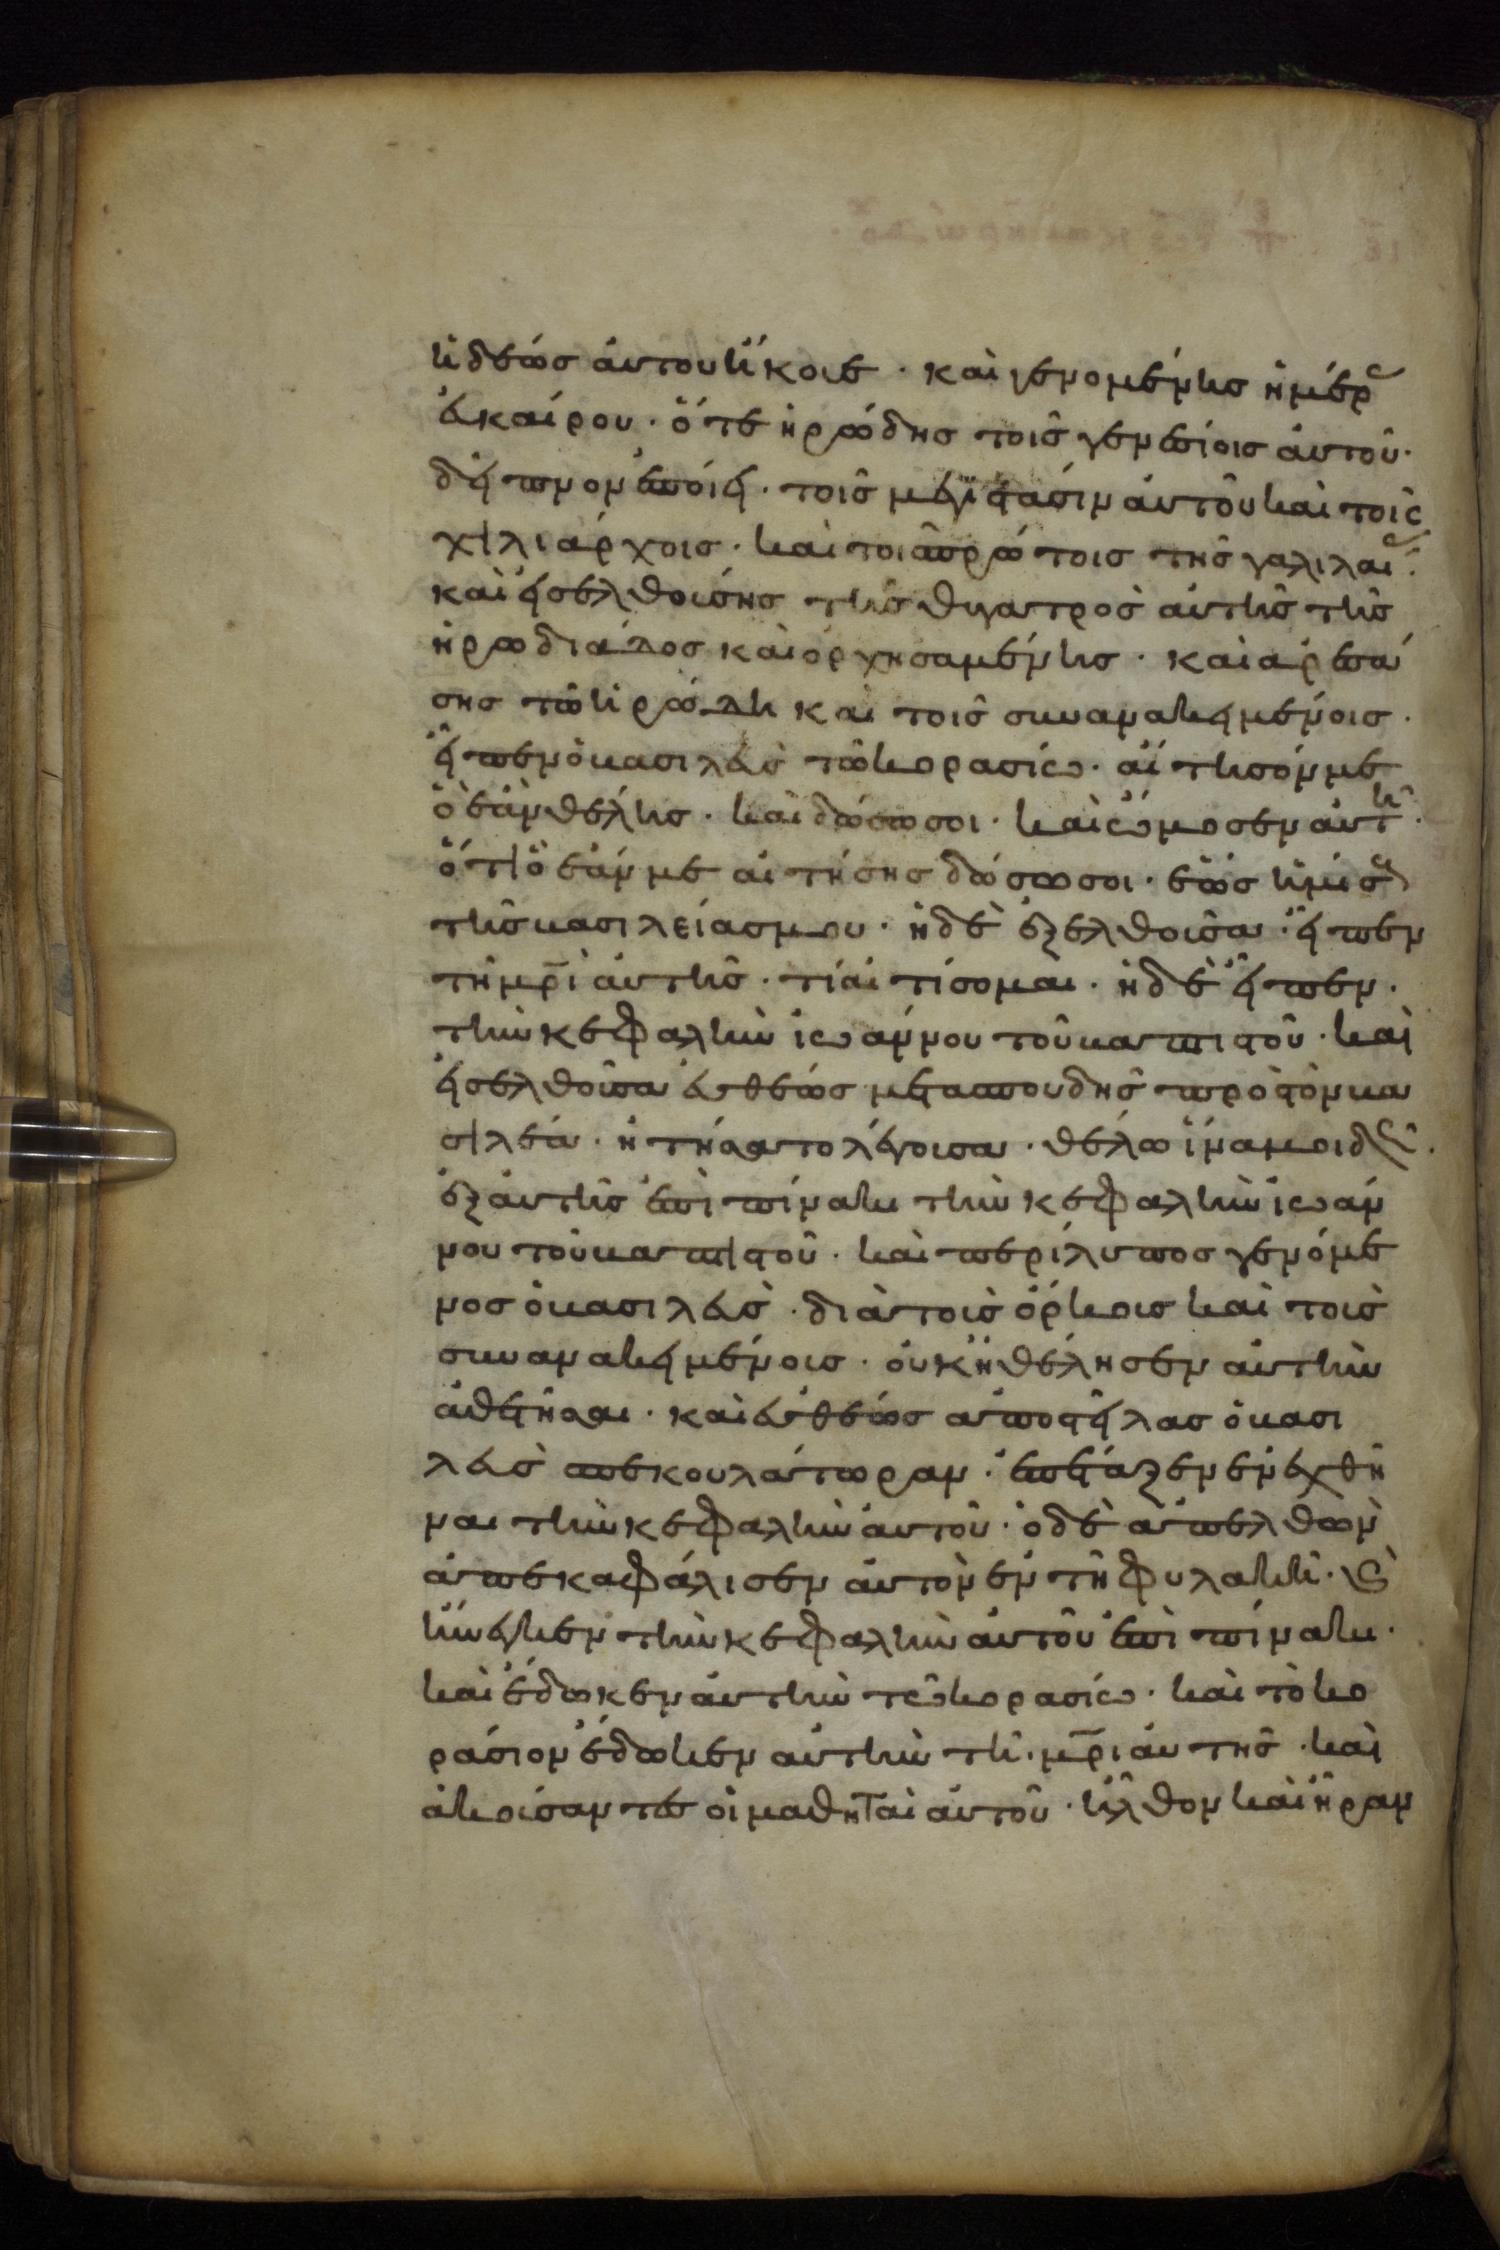 ἡδέως αὐτοῦ ἤκουε · καὶ γενομένης ἡμέρ
εὐκαίρου · ὅτε ἡρώδης τοῖς γενεσίοις αὐτοῦ ·
δεῖπνον ἐποίει · τοῖς μεγιστάσιν αὐτοῦ καὶ τοῖς
χιλιάρχοις · καὶ τοῖς πρώτοις τῆς γαλιλαί ·
καὶ εἰσελθούσης τῆς θυγατρὸς αὐτῆς τῆς
ἡρωδιάδος καὶ ὀρχησαμένης · καὶ ἀρεσά
σης τῶ ἡρώδη καὶ τοῖς συνανακειμένοις ·
εἶπεν ὁ βασιλεὺς τῶ κορασίω · αἴτησόν με
ὃ ἐὰν θέλης · καὶ δώσω σοι · καὶ ὤμοσεν αὐτῆ ·
ὅτι ὃ ἐάν με αἰτήσης δώσω σοι · ἕως ἡμίσ
τῆς βασιλείας μου · ἡ δὲ ἐξελθοῦσα · εἶπεν
τῆ μρὶ αὐτῆς · τί αἰτίσομαι · ἡ δὲ εἶπεν ·
τὴν κεφαλὴν ἰωάννου τοῦ βαπτιστοῦ · καὶ
εἰσελθοῦσα εὐθέως μετὰ σπουδῆς πρὸς τὸν βα
σιλέα · ἠτήσατο λέγουσα · θέλω ἵνα μοι δῶς ·
ἐξ αὐτῆς ἐπὶ πίνακι τὴν κεφαλὴν ἰωάν
νου τοῦ βαπτιστοῦ · καὶ περίλυπος γενόμε
νος ὁ βασιλεὺς · διὰ τοὺς ὅρκους καὶ τοὺς
συνανακειμένους · οὐκ ἠθέλησεν αὐτὴν
ἀθετῆσαι · καὶ εὐθέως ἀποστείλας ὁ βασι
λεὺς σπεκουλάτωραν · ἐπέταξεν ἐνεχθῆ
ναι τὴν κεφαλὴν αὐτοῦ · ὁ δὲ ἀπελθὼν
ἀπεκαφάλισεν αὐτὸν ἐν τῆ φυλακῆ · ϗ
ἤνεγκεν τὴν κεφαλὴν αὐτοῦ ἐπὶ πίνακι ·
καὶ ἔδωκεν αὐτὴν τῶ κορασίω · καὶ τὸ κο
ράσιον ἔδωκεν αὐτὴν τῆ μρὶ αὐτῆς · καὶ
ἀκούσαντες οἱ μαθηταὶ αὐτοῦ · ἦλθον καὶ ἦραν